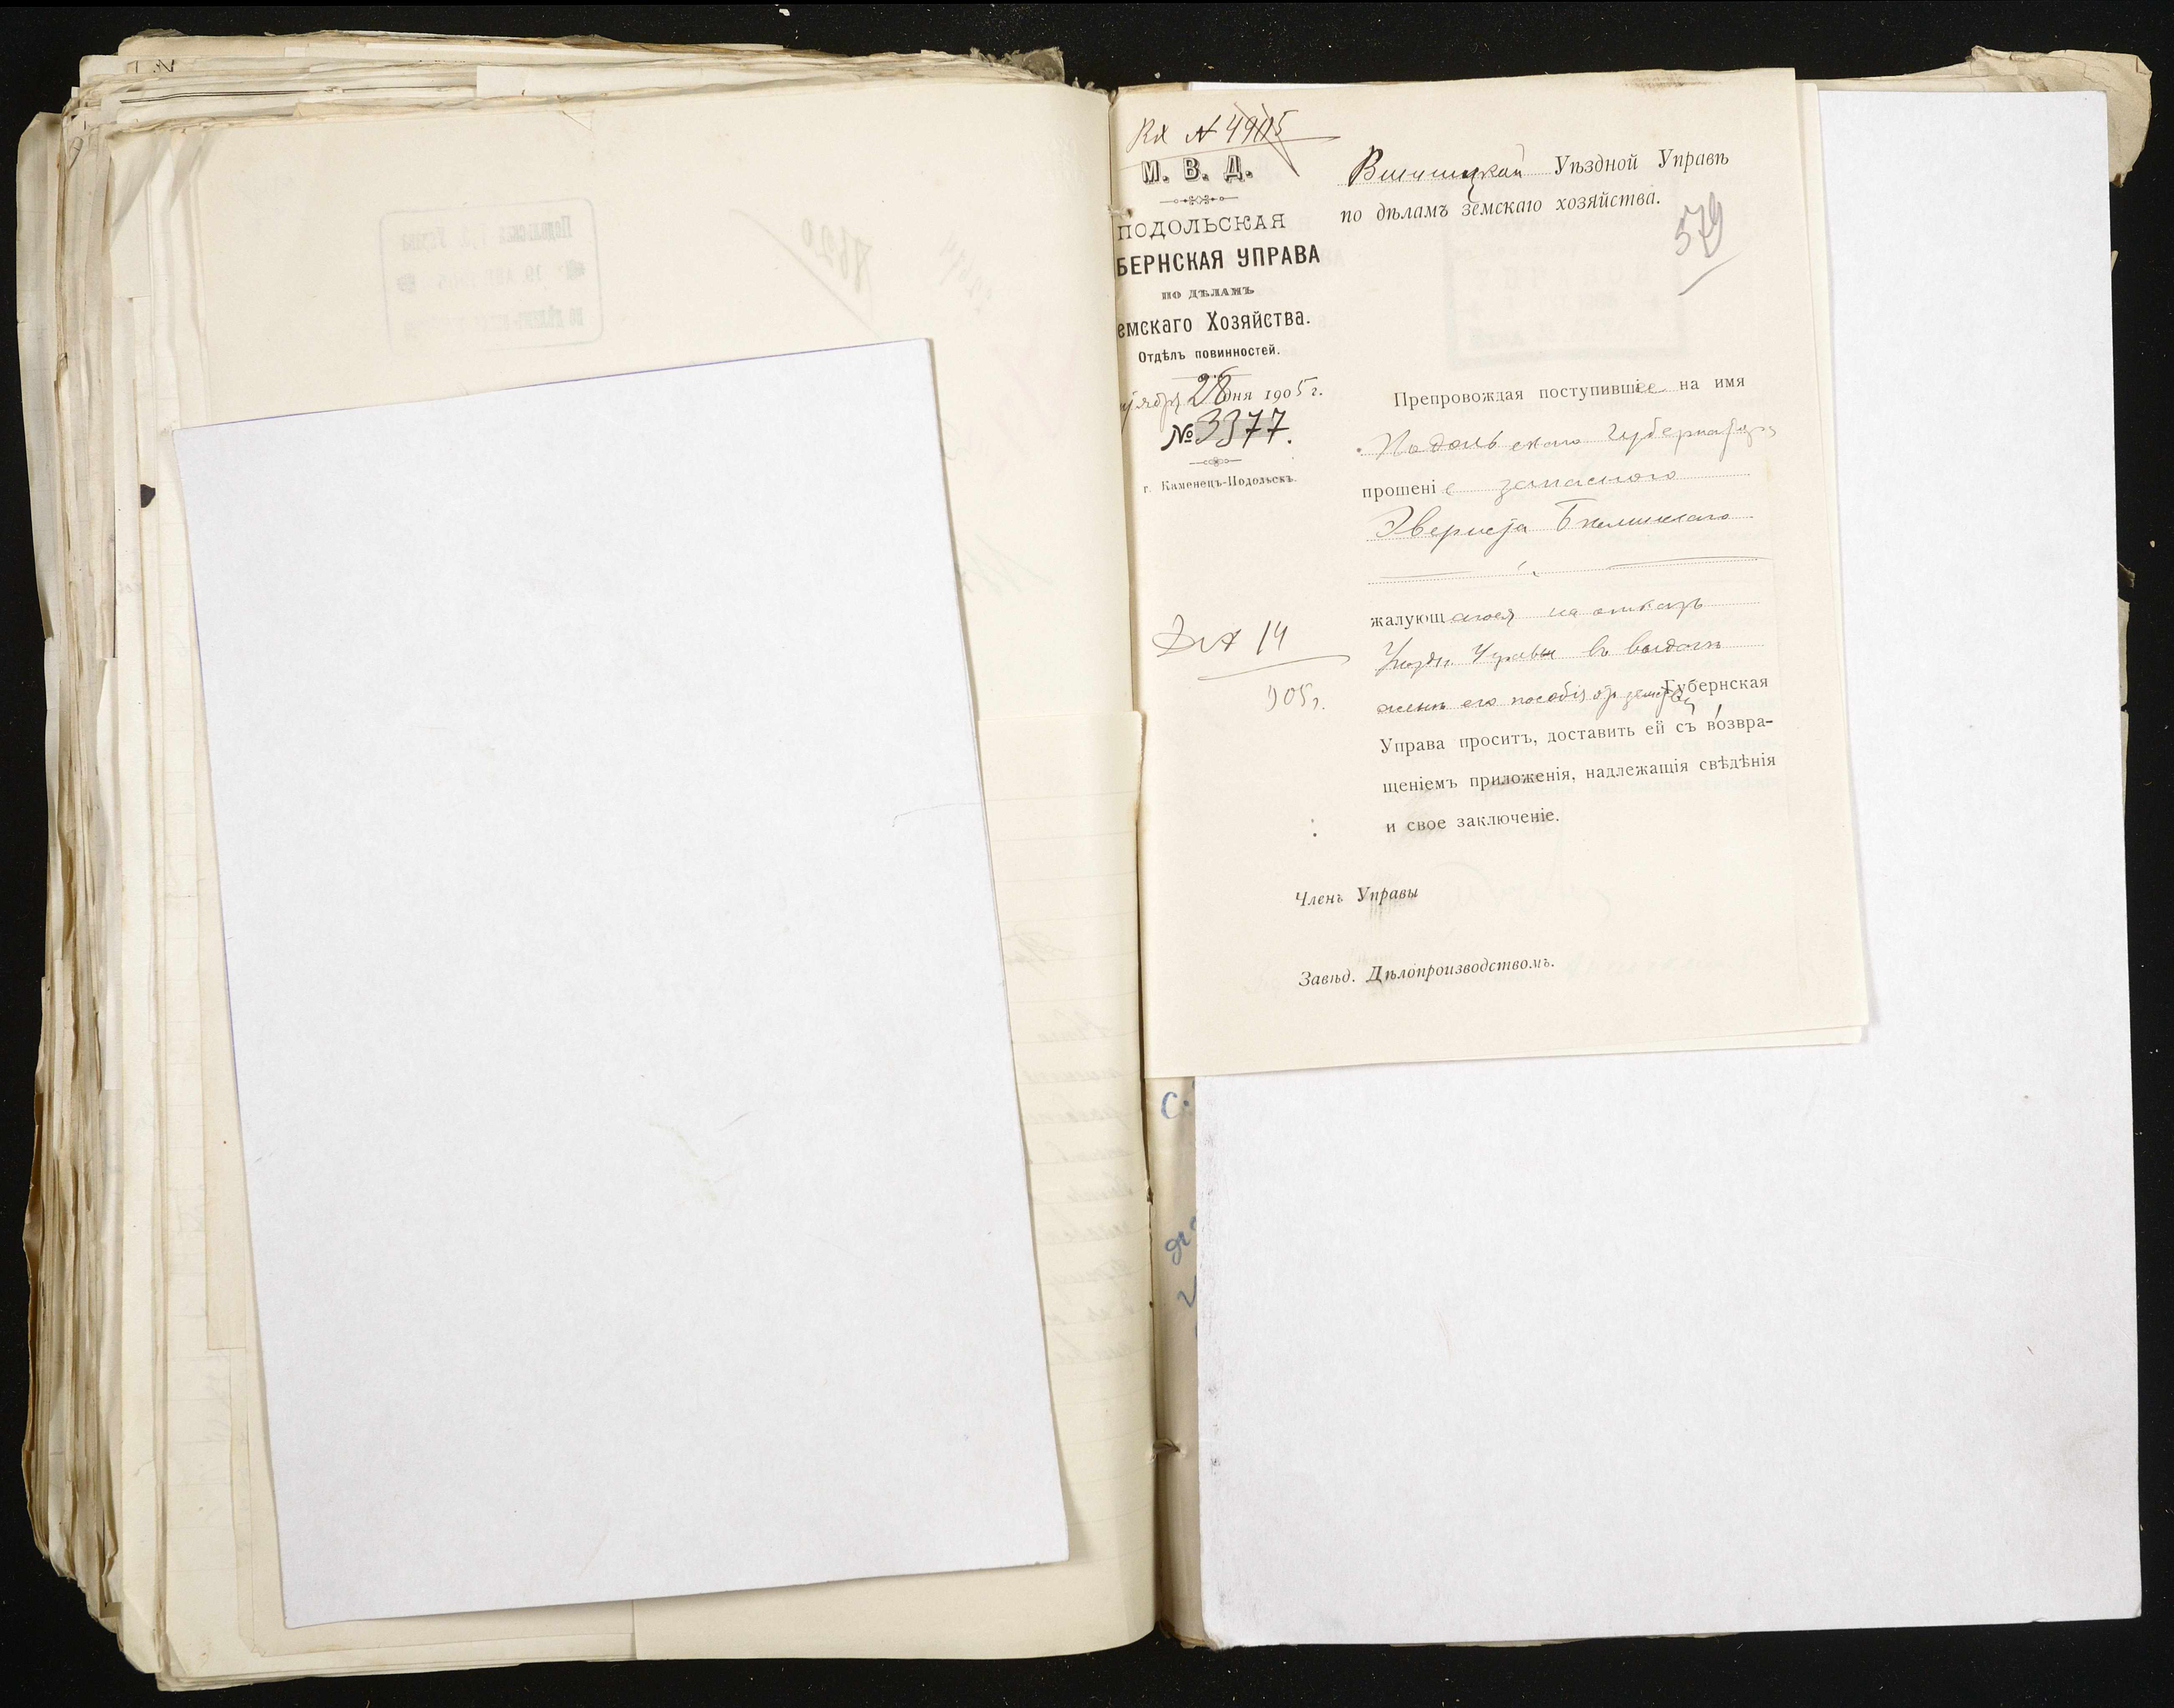 Вх № 4905
М. В. Д.
ПОДОЛЬСКАЯ
БЕРНСКАЯ УПРАВА
ПО ДѢЛАМЪ
емскаго Хозяйства.
Отдѣлъ повинностей.
28 дня 1905 г.
№ 3377.
г. Каменецъ-Подольскъ.
905 г.
Винницкой Уѣздной Управѣ
по дѣламъ земскаго хозяйства.
579
Препровождая поступившіее на имя
Подольскаго Губернатора
прошеніе запасного
Эвериста
жалующагося на отказъ
Уѣздн. Управы въ выдачѣ
женѣ его пособія отъ земства, Губернская
Управа проситъ, доставить ей съ возвра-
щеніемъ приложенія, надлежащія свѣдѣнія
и свое заключеніе.
Членъ Управы
Завѣд. Дѣлопроизводствомъ.